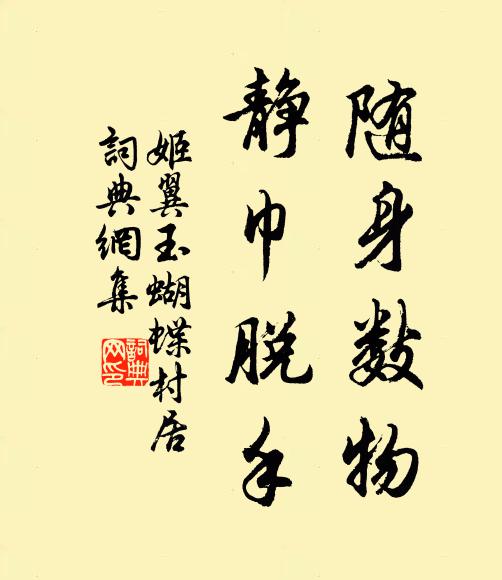 随身数物
静巾脱手
姬翼玉蝴蝶村居
詞典網集
詞典网印